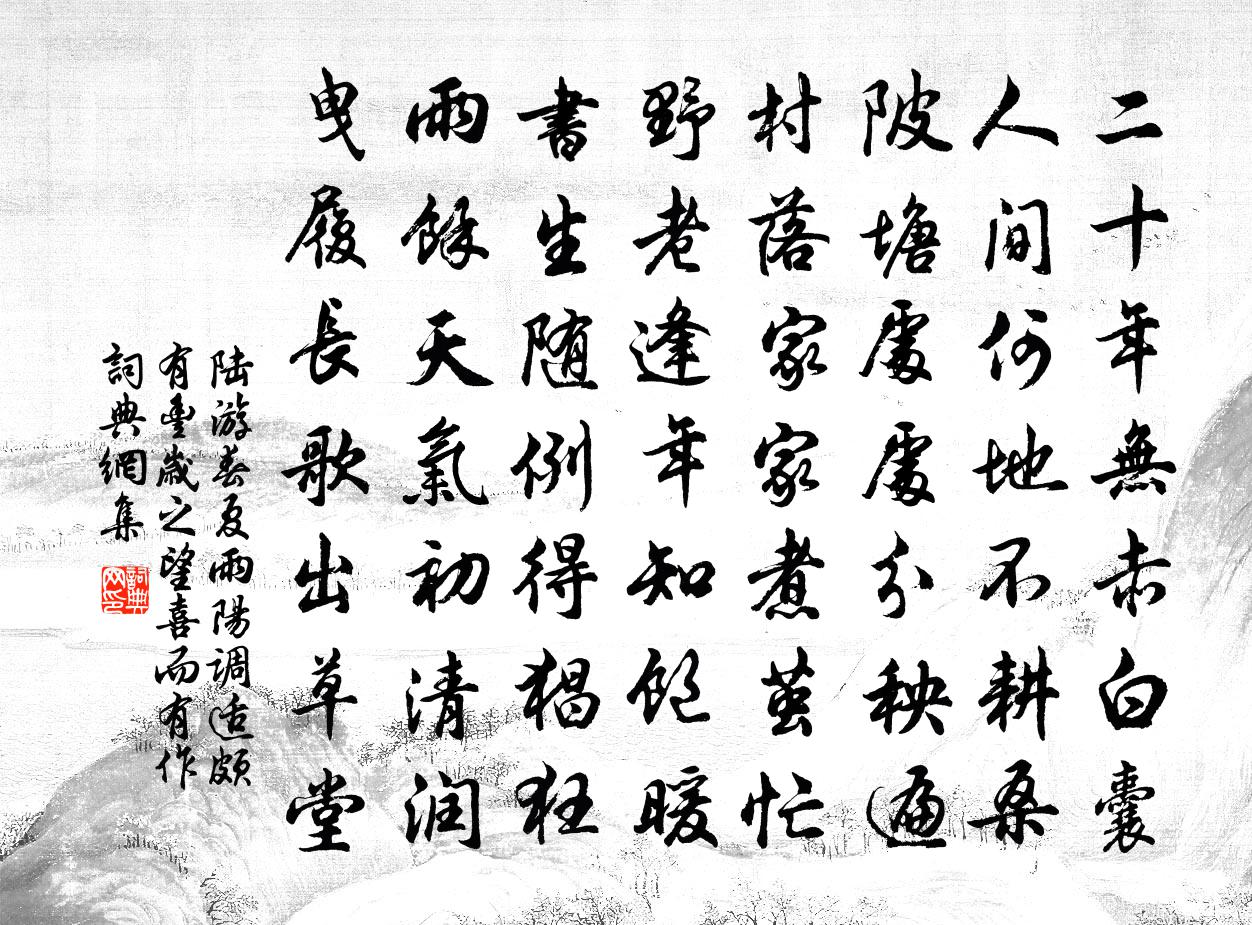 二十年無赤白囊
人間何地不耕桑
陂塘處處分秧遍
村落家家煮茧忙
野老逢年知飽暖
書生随例得猖狂
雨餘天氣初清润
曳履長歌出草堂
陆游春夏雨陽调适頗
有豐歲之望喜而有作
詞典網集
詞典网印